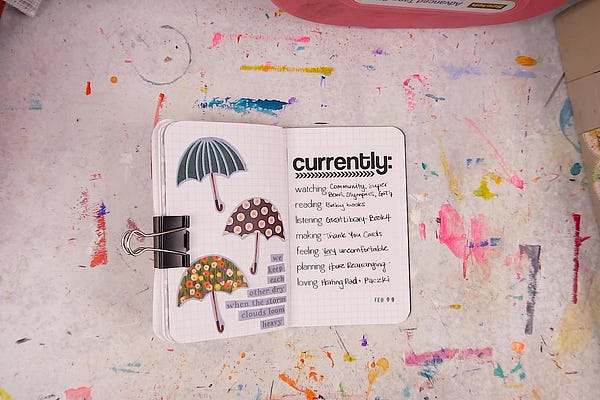 we
keep
each
other dry
when the storm
clouds loom
heavy.
currently:
watching Community, Super
Bowl, Olympics, GoT
reading Baby books
listening Great Library - Book 4
making Thank You Cards
feeling Very uncomfortable
planning House Rearranging
loving Heating Pad + Paczki
FEB
Scotch
Advanced Tape